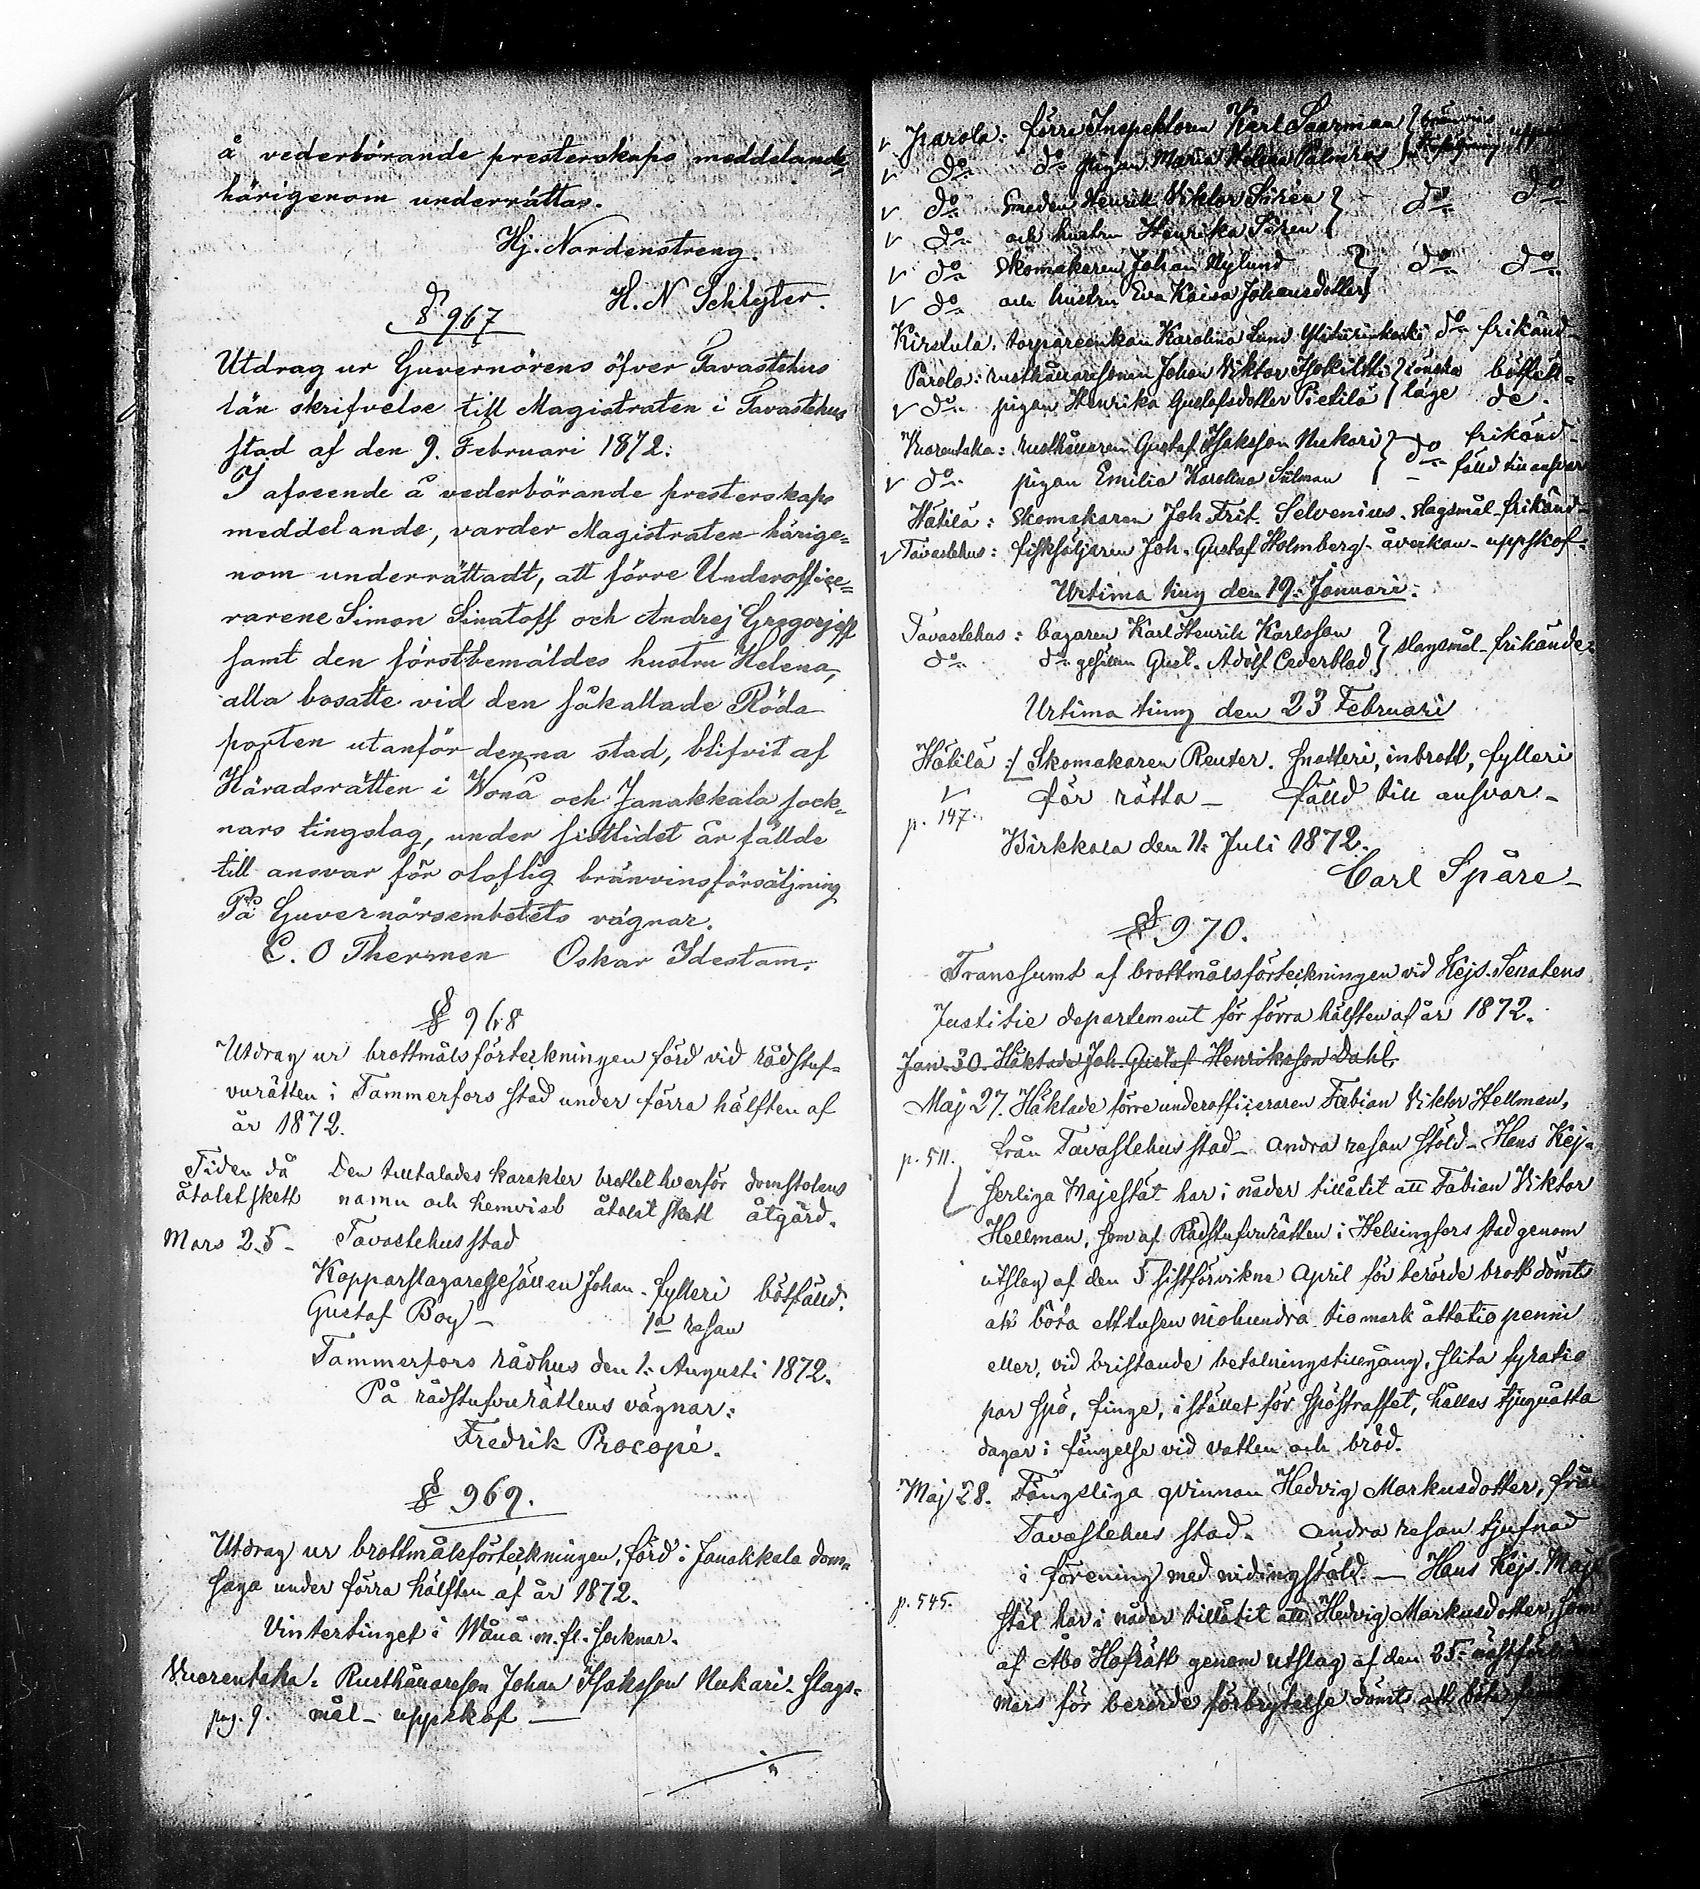 å vederbörande presterskaps meddelande,
härigenom underrättas.
Hj. Nordenstreng.
H. N Schlyter.
§ 967
Utdrag ur Guvernörens öfver Tavastehus
län skrifvelse till Magistraten i Tavastehus
stad af den 9. Februari 1872:
I afseende å vederbörande presterskaps
meddelande, varder Magistraten härige=
nom underrättadt, att förre Underoffice=
rarene Simon Sinatoff och Andrej Gregorjeff
samt den förstbemäldes hustru Helena,
alla bosatte vid den såkallade Röda
porten utanför denna stad, blifvit af
Häradsrätten i Wonå och Janakkala sock=
nars tingslag, under sistlidet år fällde
till ansvar för oloflig bränvinsförsäljning
På Guvernörsembetets vägnar.
C. O Thermen Oskar Idestam.
§ 968
Utdrag ur brottmålsförteckningen förd vid rådstuf-
vurätten i Tammerfors stad under förra hälften af
år 1872.
Tiden då Den tilltalades karakter brottet hvarför domstolens
åtalet skett namn och hemvist åtalet skett åtgärd.
Mars 25 - Tavastehus stad
Kopparslagaregesällen Johan - fylleri bötfälld.
Gustaf Boy - 1a resan
Tammerfors rådhus den 1. Augusti 1872.
På rådstufvurättens vägnar:
Fredrik Procopé.
§ 969.
Utdrag ur brottmålsförteckningen, förd i Janakkala dom=
saga under förra hälften af år 1872.
Vintertinget i Wånå m. fl. socknar.
Vuorentaka: Rusthållareson Johan Isaksson Nukari - slags=
pag. 9. mål - uppskof -
v Parola: förre Inspektoren Karl Saarman } bränvins
v do do pigan Maria Helena Palmros }
v do Smeden Henrik Viktor Sirén } - do do
v do och hustru Henrika Sirén }
v do Skomakaren Johan Nylund } do do
v do och hustru Eva Kaisa Johansdotter }
Kirstula: torpareenkan Karolina Lund do frikänd
Parola: rusthållaresonen Johan Viktor } lönska bötfäll=
v do pigan Henrika Gustafsdotter Pietilä } läge de.
Vuorentaka: rusthållaren Gustaf Isaksson Nukari } do frikänd-
v do pigan Emilia Karolina Silman } - fälld till ansvar
Hätilä: Skomakaren Joh. Frit. Selvenius - slagsmål - frikänd -
v Tavastehus: fisksäljaren Joh. Gustaf Holmberg - åverkan - uppskof.
Urtima ting den 19. Januari.
Tavastehus: bagaren Karl Henrik Karlsson } slagsmål - frikände.
do do gesällen Gust. Adolf Cederblad }
Urtima ting den 23 Februari
Hätilä :/ Skomakaren Reuter. snatteri, inbrott, fylleri
v för rätta - fälld till ansvar -
p. 147.
Birkkala den 11. Juli 1872.
Carl Spåre -
§ 970.
Transsumt af brottmålsförteckningen vid Kejs. Senatens
Justitie departement för förra hälften af år 1872.
Jan. 30. Häktade Joh. Gustaf Henriksson Dahl.
Maj 27. Häktade förre underofficeraren Fabian Viktor Hellman,
p. 511. från Tavastehus stad - andra resan stöld - Hans Kej=
serliga Majestät har i nåder tillåtit att Fabian Viktor
Hellman, som af Rådstufvurätten i Helsingfors stad genom
utslag af den 5 sistförvikne April för berörde brott dömts
att böta ettusen niohundra tio mark åttatio penni
eller, vid bristande betalningstillgång, slita fyratio
par spö, finge, i stället för spöstraffet, hållas tjuguåtta
dagar i fängelse vid vatten och bröd.
Maj 28. Fängsliga qvinnan Hedvig Markusdotter, från
Tavastehus stad. andra resan tjufnad
i förening med nidingsstöld. - Hans Kejs. Maje
p. 545. stät har i nåder tillåtit att Hedvig Markusdotter, som
af Åbo Hofrätt genom utslag af den 25
mars för berörde förbrytelse dömts att böta